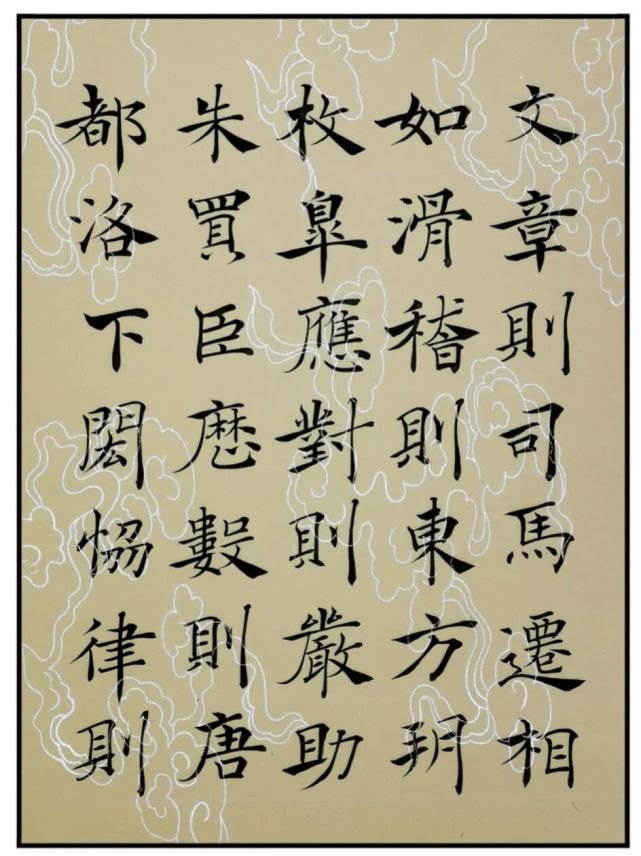 文章則司馬遷相
如滑稽則東方朔
枚皐應對則嚴助
朱買臣歷數則唐
都洛下閎恊律則